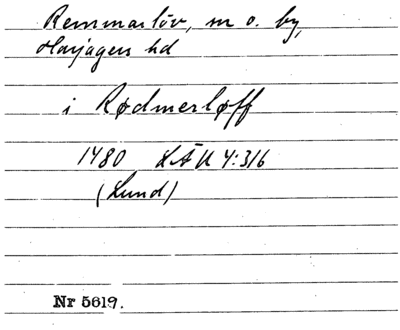 Remmarlöv, sn o. by,
Harjagers hd
i Rødmerløff
1480 LÄU 4:316
(Lund)
Nr 5619.